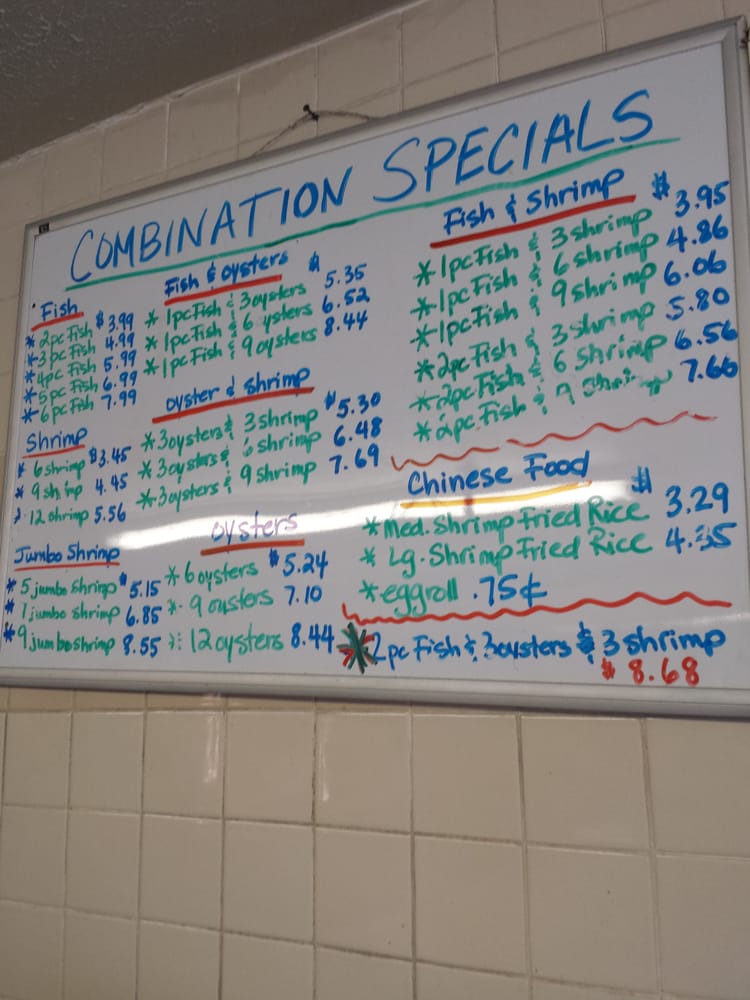 COMBINATION SPECIALS
Fish
* 2pc Fish $3.99
* 3pc Fish 4.99
* 4pc Fish 5.99
* 5pc Fish 6.99
* 6pc Fish 7.99
Shrimp
* 6 shrimp $3.45
* 9 shimp 4.45
* 12 shrimp 5.56
Jumbo Shrimp
* 5 jumbo shrimp $5.15
* 1 jumbo shrimp 6.85
* 9 jumbo shrimp 8.55
Fish & oysters $
* 1pc Fish & 3 oysters 5.35
* 1pc Fish & 6 ysters 6.52
* 1pc Fish & 9 oysters 8.44
oyster & shrimp
* 3 oysters & 3 shrimp $5.30
* 3 oysters & 6 shrimp 6.48
* 3 oysters & 9 shrimp 7.69
oysters
* 6 oysters $5.24
* 9 oysters 7.10
* 12 oysters 8.44
Fish & Shrimp $
* 1pc Fish & 3 shrimp 3.95
* 1pc Fish & 6 shrimp 4.86
* 1pc Fish & 9 shrimp 6.06
* 2pc Fish & 3 shrimp 5.80
* 2pc Fish & 6 shrimp 6.56
* 2pc Fish & 9 Shrimp 7.66
Chinese Food $
* Med. Shrimp Fried Rice 3.29
* Lg. Shrimp Fried Rice 4.35
* eggroll .75¢
* 2pc Fish & 3 oysters & 3 shrimp
$8.68